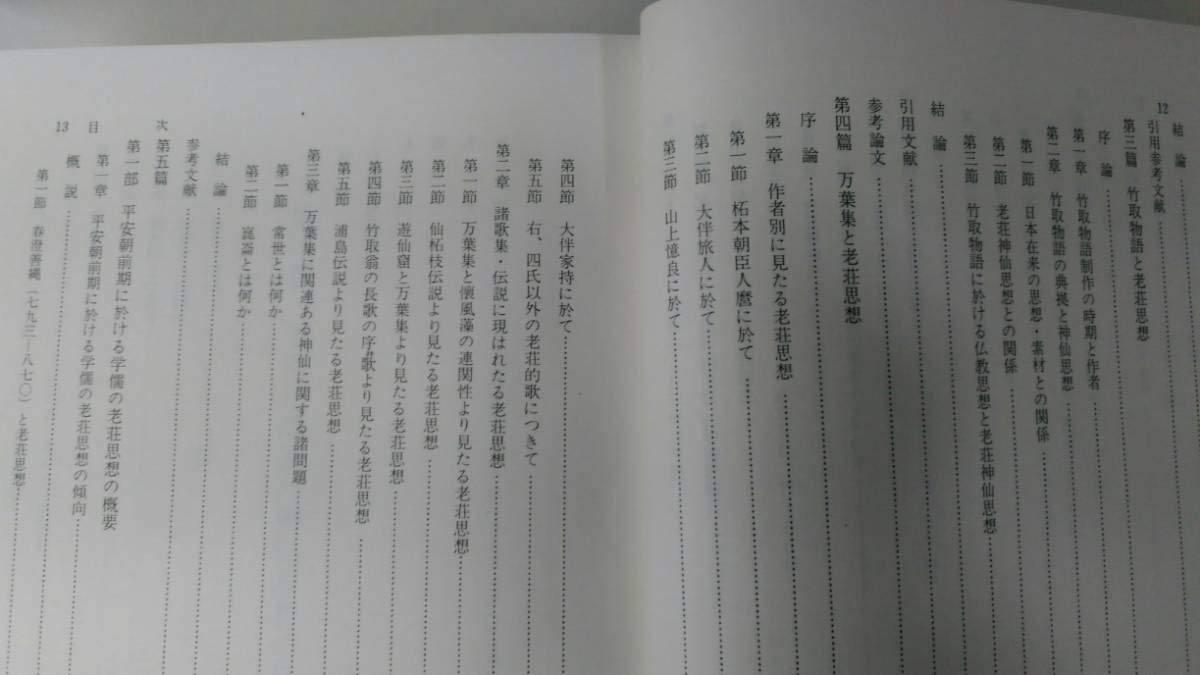 12
結論
引用参考文献
第三篇　竹取物語と老荘思想
序論
第一章　竹取物語制作の時期と作者
第二章　竹取物語の典拠と神仙思想
第一節　日本在来の思想・素材との関係
第二節　老荘神仙思想との関係
第三節　竹取物語に於ける仏教思想と老荘神仙思想
結論
引用文献
参考論文
第四篇　万葉集と老荘思想
序論
第一章　作者別に見たる老荘思想
第一節　柘本朝臣人麿に於て
第二節　大伴旅人に於て
第三節　山上憶良に於て
第四節　大伴家持に於て
第五節　右、四氏以外の老荘的歌につきて
第二章　諸歌集・伝説に現はれたる老荘思想
第一節　万葉集と懐風藻の連関性より見たる老荘思想
第二節　仙柘枝伝説より見たる老荘思想
第三節　遊仙窟と万葉集より見たる老荘思想
第四節　竹取翁の長歌の序并歌より見たる老荘思想
第五節　浦島伝説より見たる老荘思想
第三章　万葉集に関連ある神仙に関する諸問題
第一節　常世とは何か
第二節　崑崙とは何か
結論
参考文献
第五篇
第一部　平安朝前期に於ける学儒の老荘思想の概要
第一章　平安朝前期に於ける学儒の老荘思想の傾向
概説
第一節　春澄善縄（七九三―八七〇）と老荘思想
目次
13